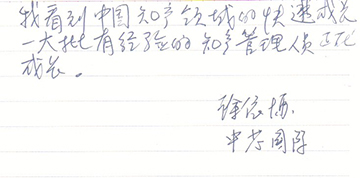 我看到中国知产领域的快速成长
一大批有经验的知产管理人员正在
成长。
中芯国际